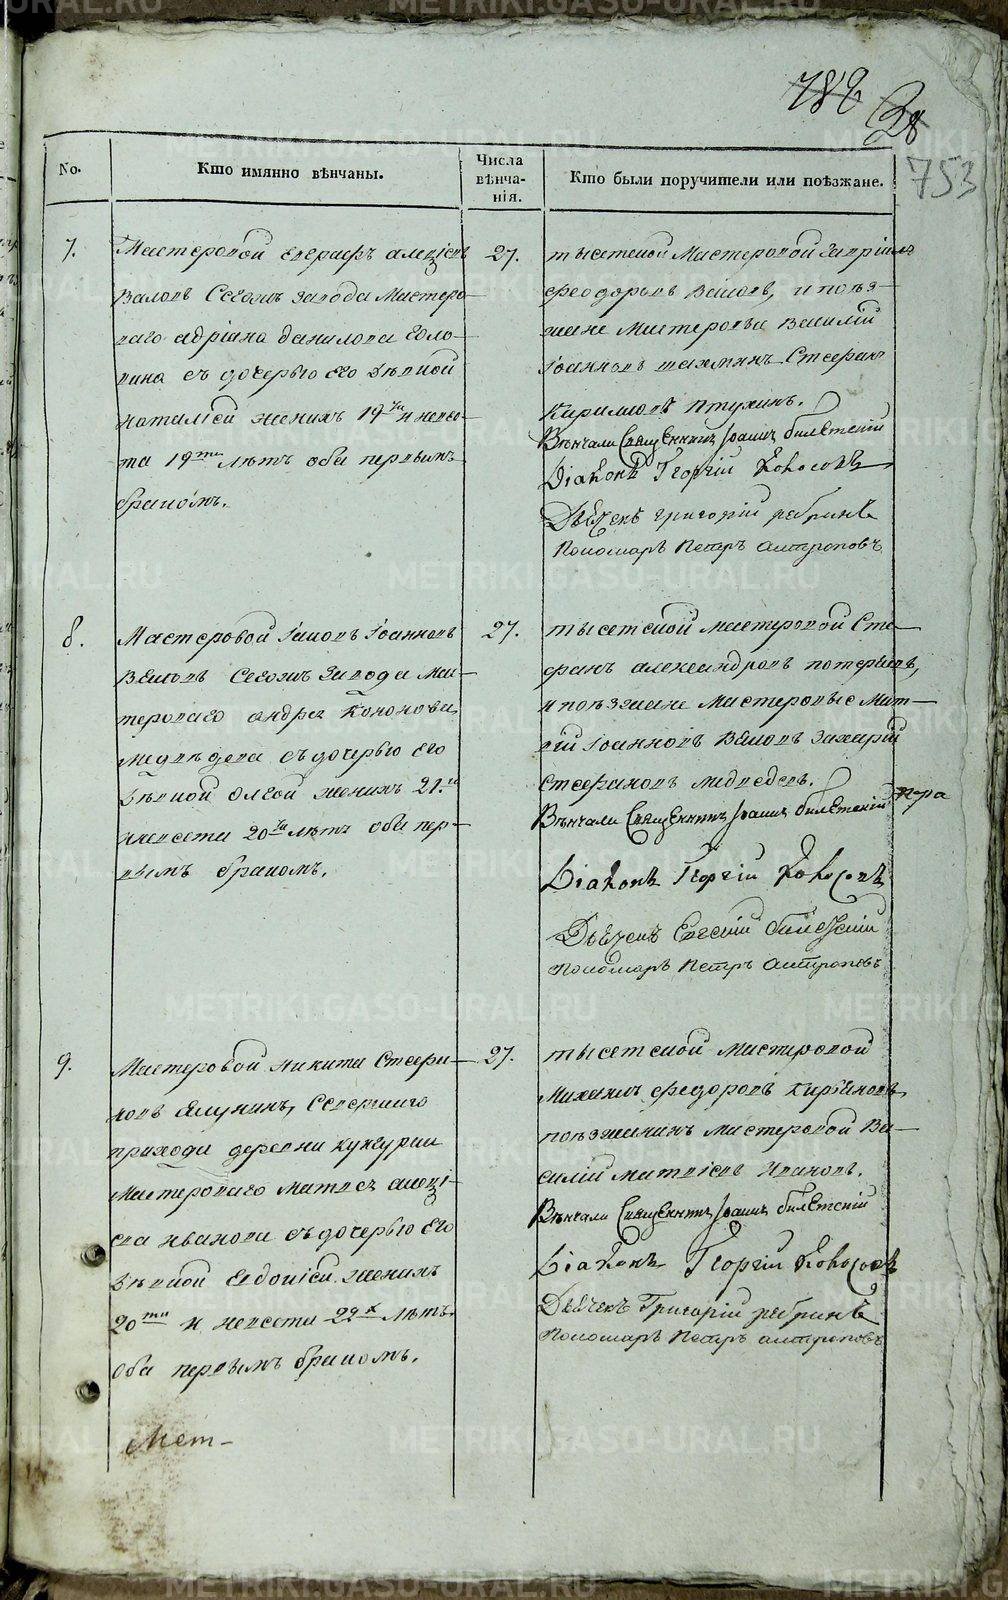 782
28
753
No.
Кто имянно вѣнчаны.
Числа
вѣнча-
нія.
Кто были поручители или поѣзжане.
7.
Мастеровой Евграфъ Алеѯіевъ
Сегожъ завода Мастеро-
ваго Адріана Данилова Голо-
вина съ дочерью его дѣвкой
Наталіей жених 19ти и невѣс-
та 19ти лѣтъ оба первымъ
бракомъ.
27.
тысетской Мастеровой Гавріилъ
Феодоровъ и поѣз-
жане Мастеровые Василій
Іоанновъ Стефанъ
Кириловъ Птухинъ.
Вѣнчали Священникъ Іоаннъ
Діаконъ Георгій Кокосовъ
Дьячекъ Григорій Ребринъ
Пономарь Петръ Антроповъ
8.
Мастеровой Іоанновъ
Сегожъ завода Мас-
тероваго Андрея Кононова
Медвѣдева съ дочерью его
дѣвкой Олгой женихъ 21го
и невѣста 20ти лѣтъ оба пер-
вымъ бракомъ.
27.
тысетской мастеровой Сте-
фанъ Александровъ Потеряевъ,
и поѣзжане Мастеровые Мат-
вѣй Іоанновъ Захарій
Стефановъ Медведевъ.
Вѣнчали Священникъ Іоаннъ
Діаконъ Георгій Кокосовъ
Дьячекъ Евгеній
Пономарь Петръ Антроповъ
9.
Мастеровой Никита Стефа-
новъ Ялунинъ, Северскаго
прихода деревни Кунгурки
Мастероваго Матвея Алеѯі-
ева Иванова съ дочерью его
дѣвкой Евдокіей женихъ
20ти и невѣста 22х лѣтъ
оба первымъ бракомъ.
27.
тысетской Мастеровой
Михаилъ Федоровъ Кирьяновъ,
поѣзжанинъ Мастеровой Ва-
силій Матвіевъ Ивановъ.
Вѣнчали Священникъ Іоаннъ
Діаконъ Георгій Кокосовъ
Дьячекъ Григорій Ребринъ
Пономарь Петръ Антроповъ
Мет-
METRIKI.GASO-URAL.RU